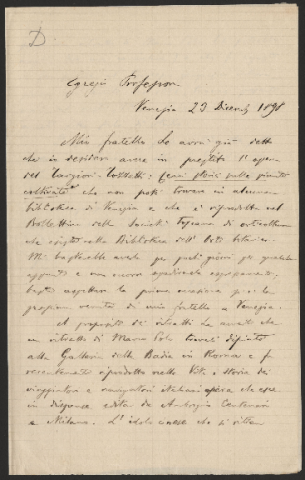 D
Egregio Professore
Venezia 23 Dicembre 1898
Mio fratello Le avrà già detto
che io desidero avere in prestito l'opera
del Targioni-Tozzetti: Cenni storici sulle piante
coltivate che non potei trovare in alcuna
biblioteca di Venezia e che si riprodotta nel
Bollettino della Società Toscana di orticoltura
che esiste nella Biblioteca dell'Orto botanico.
Mi basterebbe averla per pochi giorni
e non occorre spedirmela
basta aspettare la prima occasione per la
prossima venuta di mio fratello a Venezia.
A proposito di ritratti La avverto che
un ritratto di Marco Polo trovasi dipinto
alla Galleria della Badia in Roma e fu
recentemente riprodotto nella Vita e storia dei
viaggiatori e navigatori italiani opera che esce
in dispense edita da Antonio
a Milano. L'idolo cinese che si ritiene